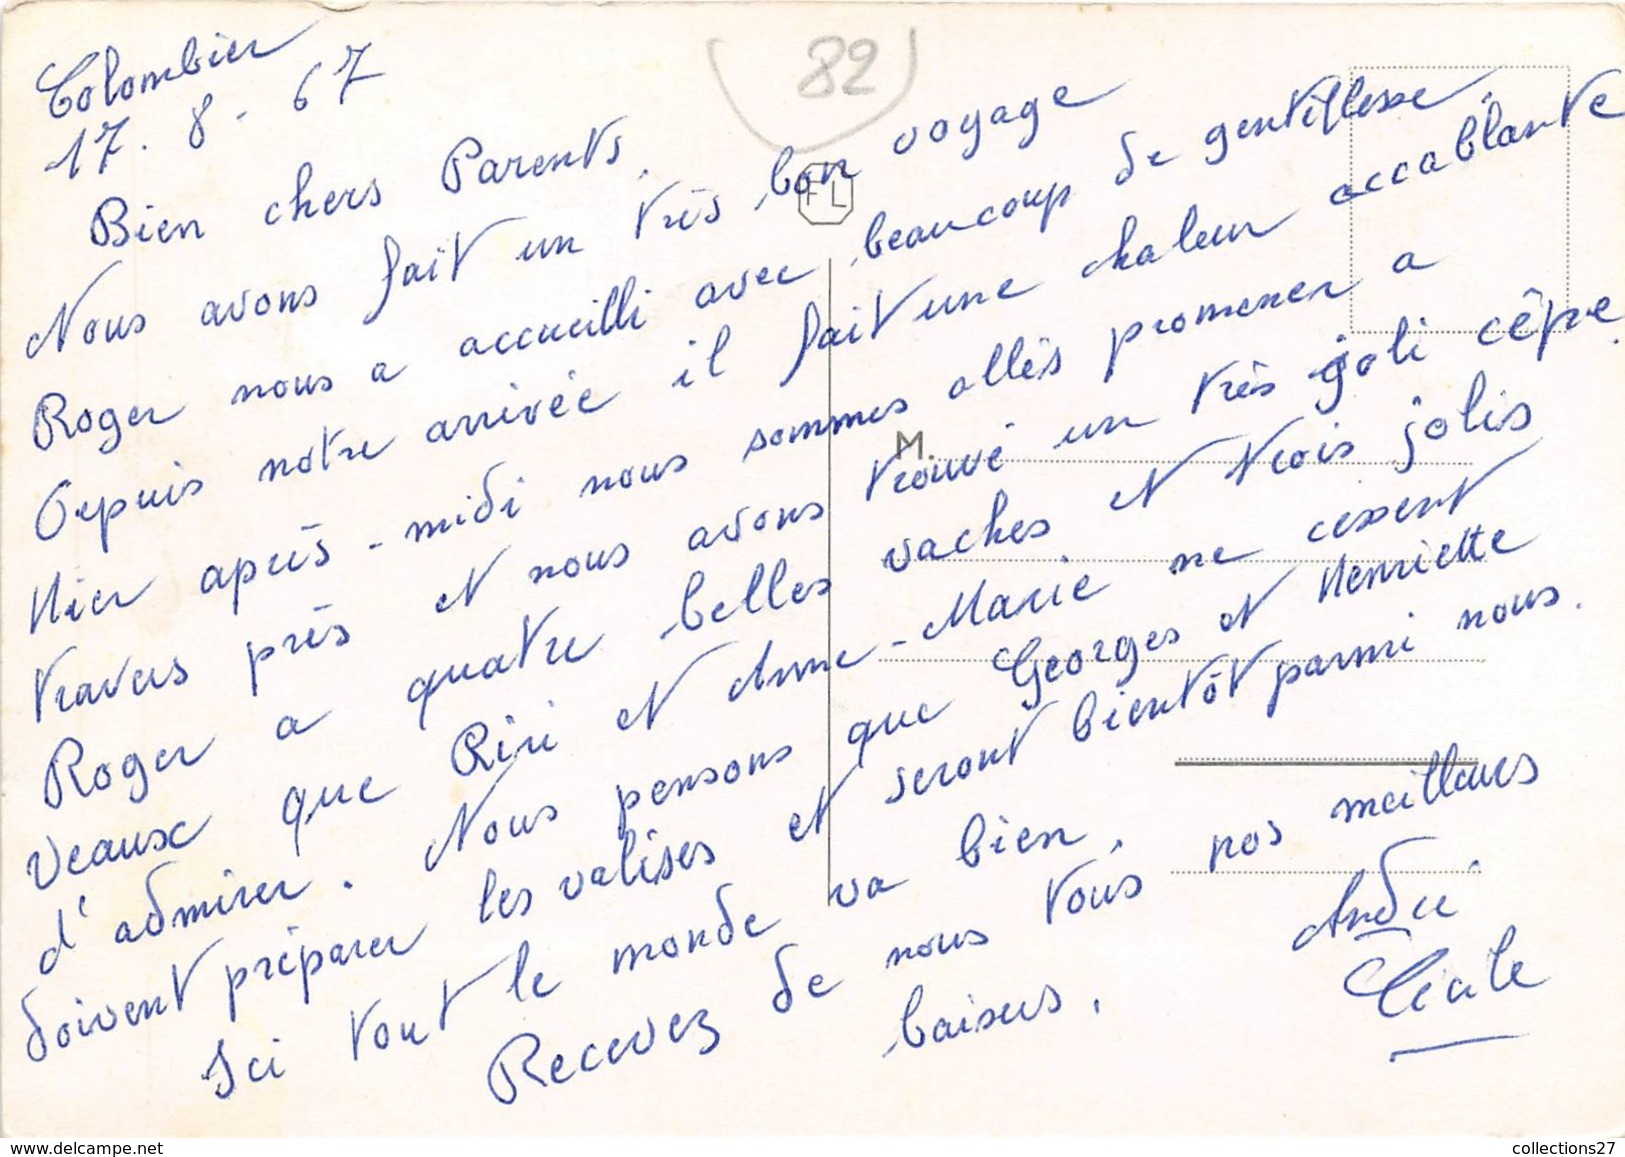 Colombier
17. 8. 67
82
Bien chers Parents,
Nous avons fait un très bon voyage
Roger nous a accueilli avec beaucoup de gentillesse.
Depuis notre arrivée il fait une chaleur accablante
Hier après-midi nous sommes allés promener a
travers près et nous avons trouvé un très joli cêpe.
Roger a quatre belles vaches et trois jolis
veaux que Riri et Anne-Marie ne cessent
d'admirer. Nous pensons que Georges et Henriette
doivent préparer les valises et seront bientôt parmi nous.
Ici tout le monde va bien.
Recevez de nous tous nos meilleurs
baisers.
André.
Cécile
FL
M.
collections27